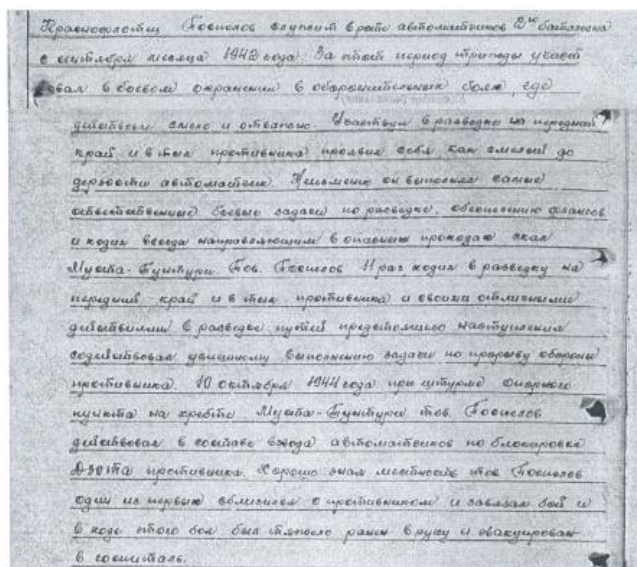 Краснофлотец Госпелов служит в роте автоматчиков 2го батальона
с октября месяца 1942 года. За этот период трижды участ
вовал в боевом охранении в оборонительных боях, где
действовал смело и отважно. Участвуя в разведке на передний
край и в тыл противника проявил себя как смелый до
дерзости автоматчик. Неизменно он выполнял самые
ответственные боевые задачи по разведке, обеспечению флангов
и ходил всегда направляющим в опасных проходах скал
Муста-Тунтури. Тов. 11 раз ходил в разведку на
передний край и в тыл противника и своими отличными
действиями в разведке путей предстоящего наступления
содействовал успешному выполнению задачи по прорыву обороны
противника. 10 октября 1944 года при штурме опорного
пункта на хребте Муста-Тунтури тов.
действовал в составе взвода автоматчиков по блокировке
Дзота противника. Хорошо зная местность тов
один из первых сблизился с противником и завязал бой и
в ходе этого боя был тяжело ранен в руку и эвакуирован
в госпиталь.